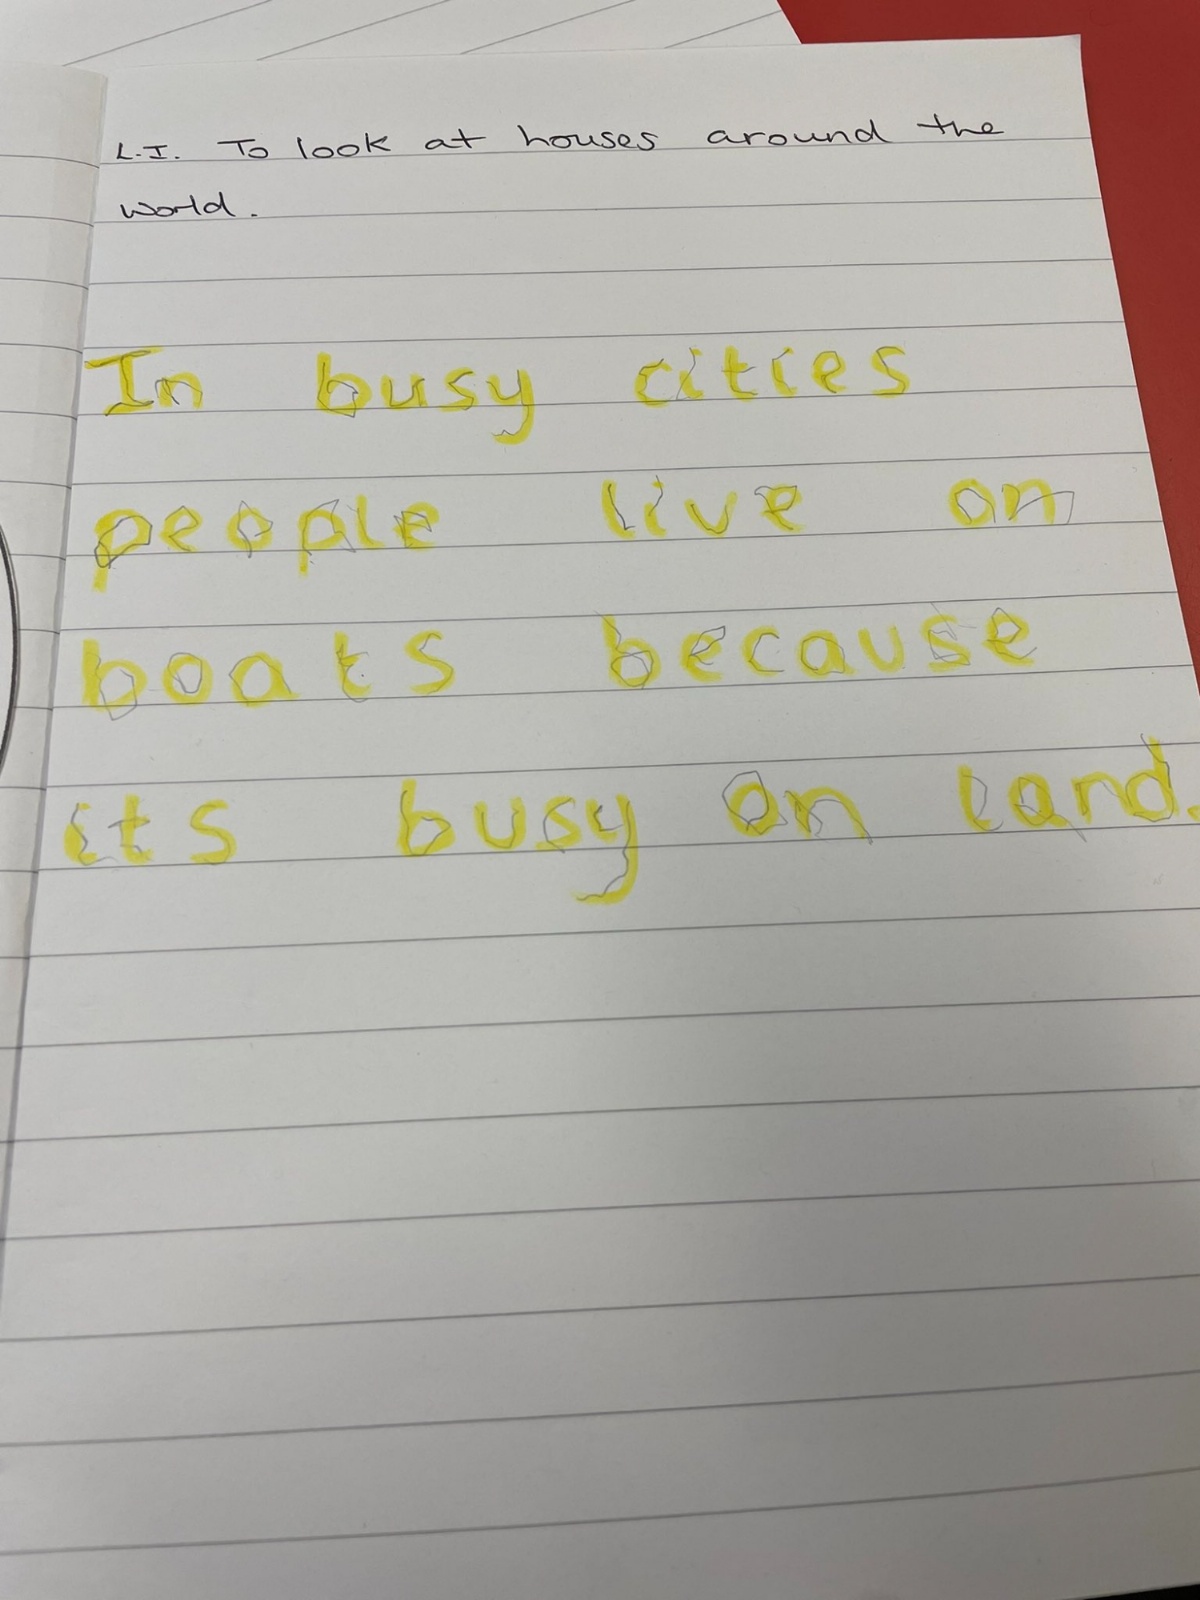 L.I. To look at houses around the
world.
In busy cities
people live on
boats because
its busy on land.